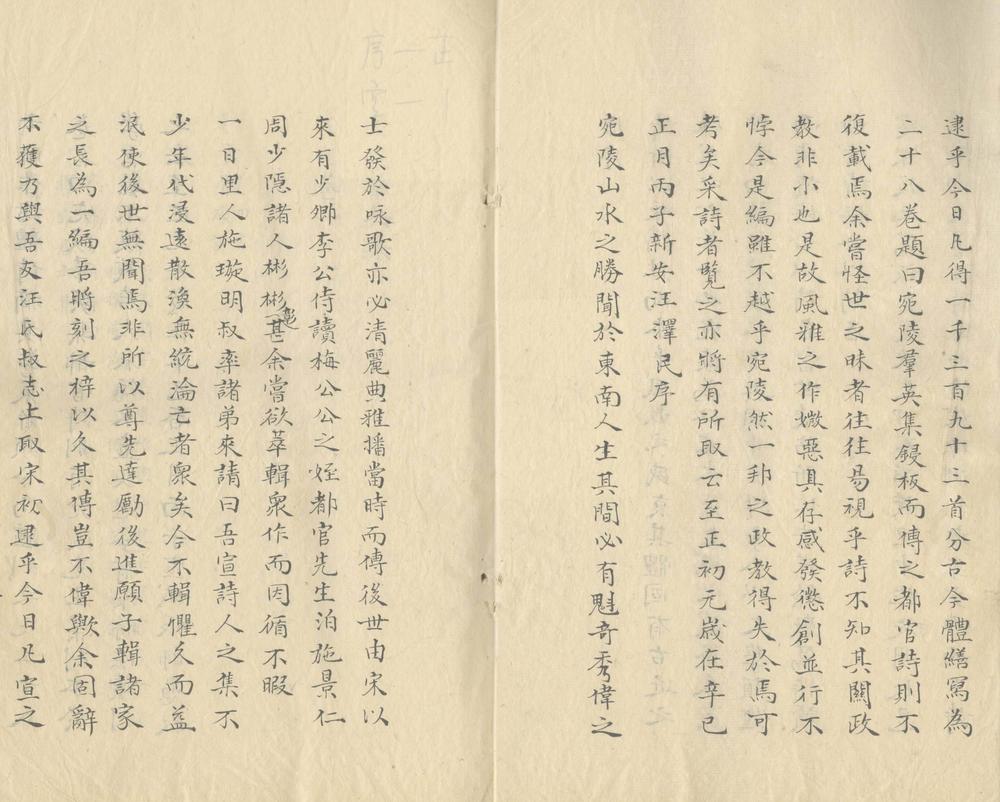 逮乎今日凡得一千三百九十三首分古今體繕寫為
二十八卷題曰宛陵羣英集鋟板而傳之都官詩則不
復載焉余嘗怪世之昧者往往易視乎詩不知其關政
教非小也是故風雅之作媺惡具存感發懲創並行不
悖今是編雖不越乎宛陵然一邦之政教得失於焉可
考矣采詩者覽之亦將有所取云至正初元嵗在辛巳
正月丙子新安汪澤民序
宛陵山水之勝聞於東南人生其間必有魁奇秀偉之
士發於咏歌亦必清麗典雅播當時而傳後世由宋以
來有少卿李公侍讀梅公公之姪都官先生洎施景仁
周少隱諸人彬彬甚余嘗欲萃輯衆作而因循不暇
一日里人施璇明叔率諸弟來請曰吾宣詩人之集不
少年代浸遠散渙無統淪亡者衆矣今不輯懼久而益
泯使後世無聞焉非所以尊先達勵後進願子輯諸家
之長為一編吾將刻之梓以久其傳豈不偉歟余固辭
不獲乃與吾友汪氏叔志上取宋初逮乎今日凡宣之